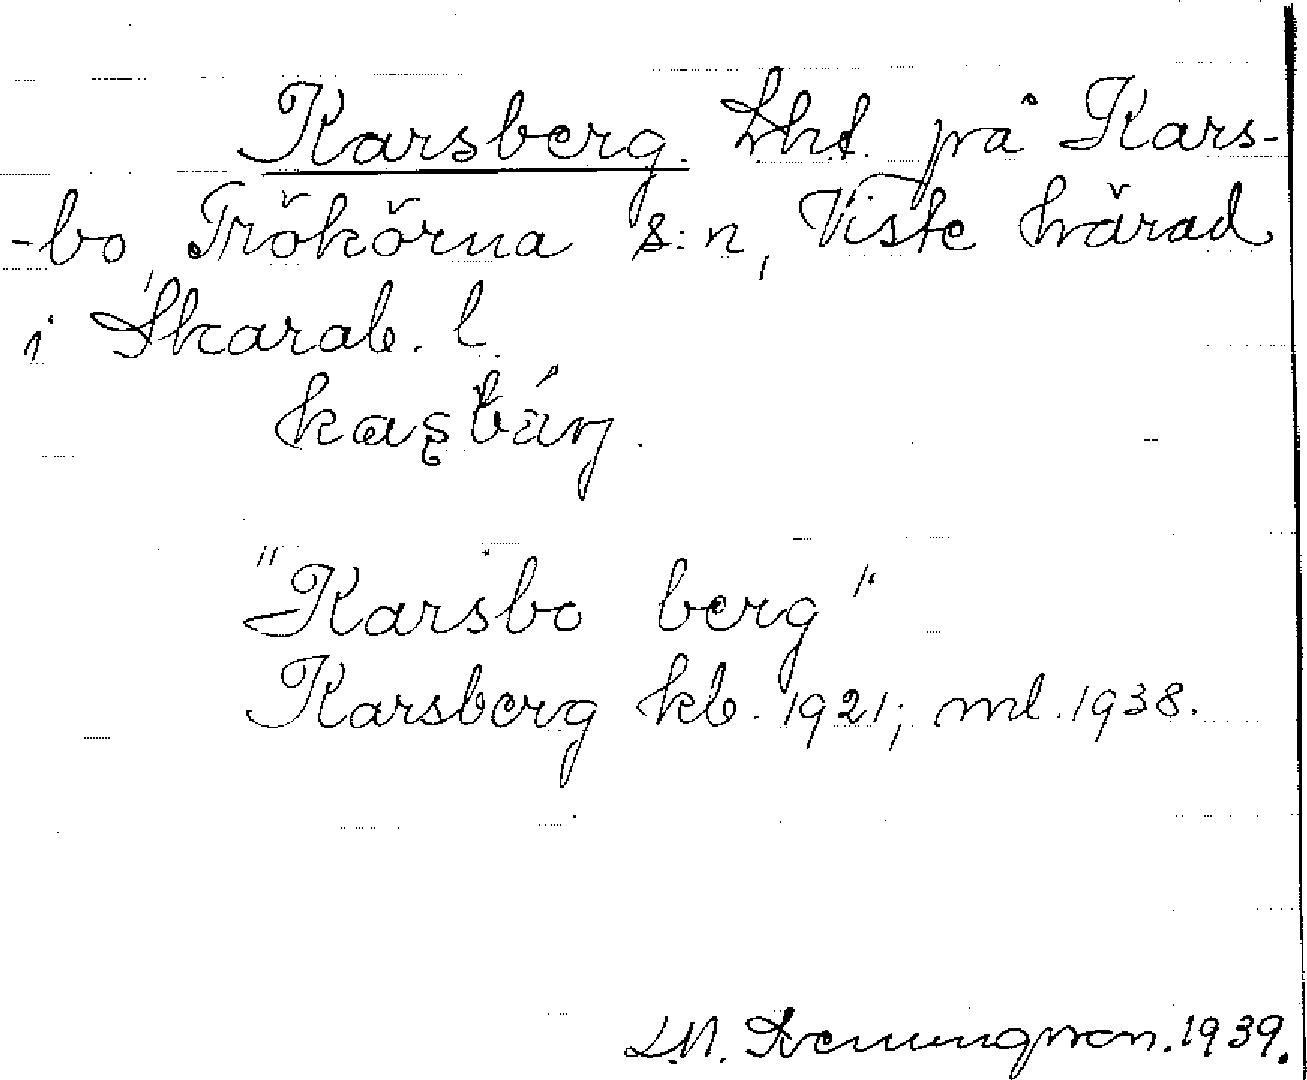 Karsberg. Lht. på Kars-
-bo, Trökörna s:n, Viste härad
i Skarab. l.
"Karsbo berg"
Karsberg kb. 1921; ml. 1938.
L.N. 1939.